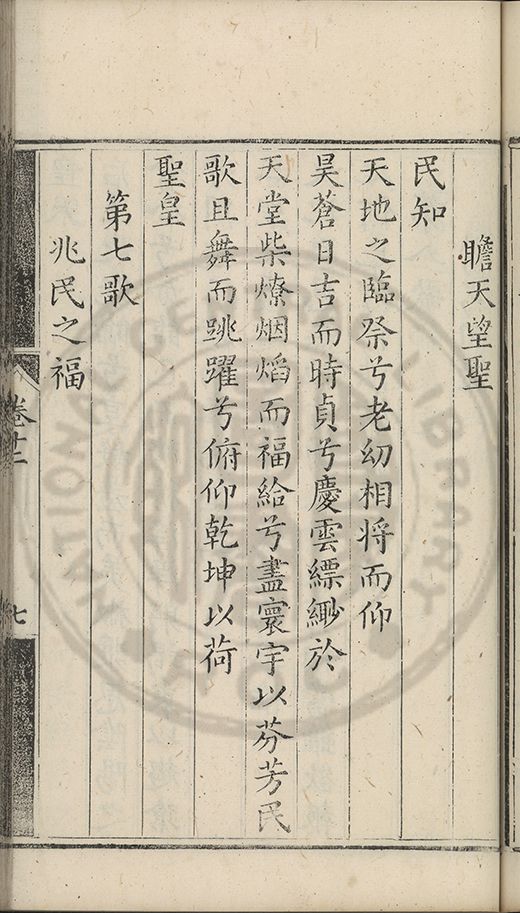 瞻天望聖
民知
天地之臨祭兮老幼相將而仰
昊蒼日吉而時貞兮慶雲縹緲於
天堂柴燎烟熖而福給兮盡寰宇以芬芳民
歌且舞而跳躍兮俯仰乾坤以荷
聖皇
第七歌
兆民之福
卷十二
七